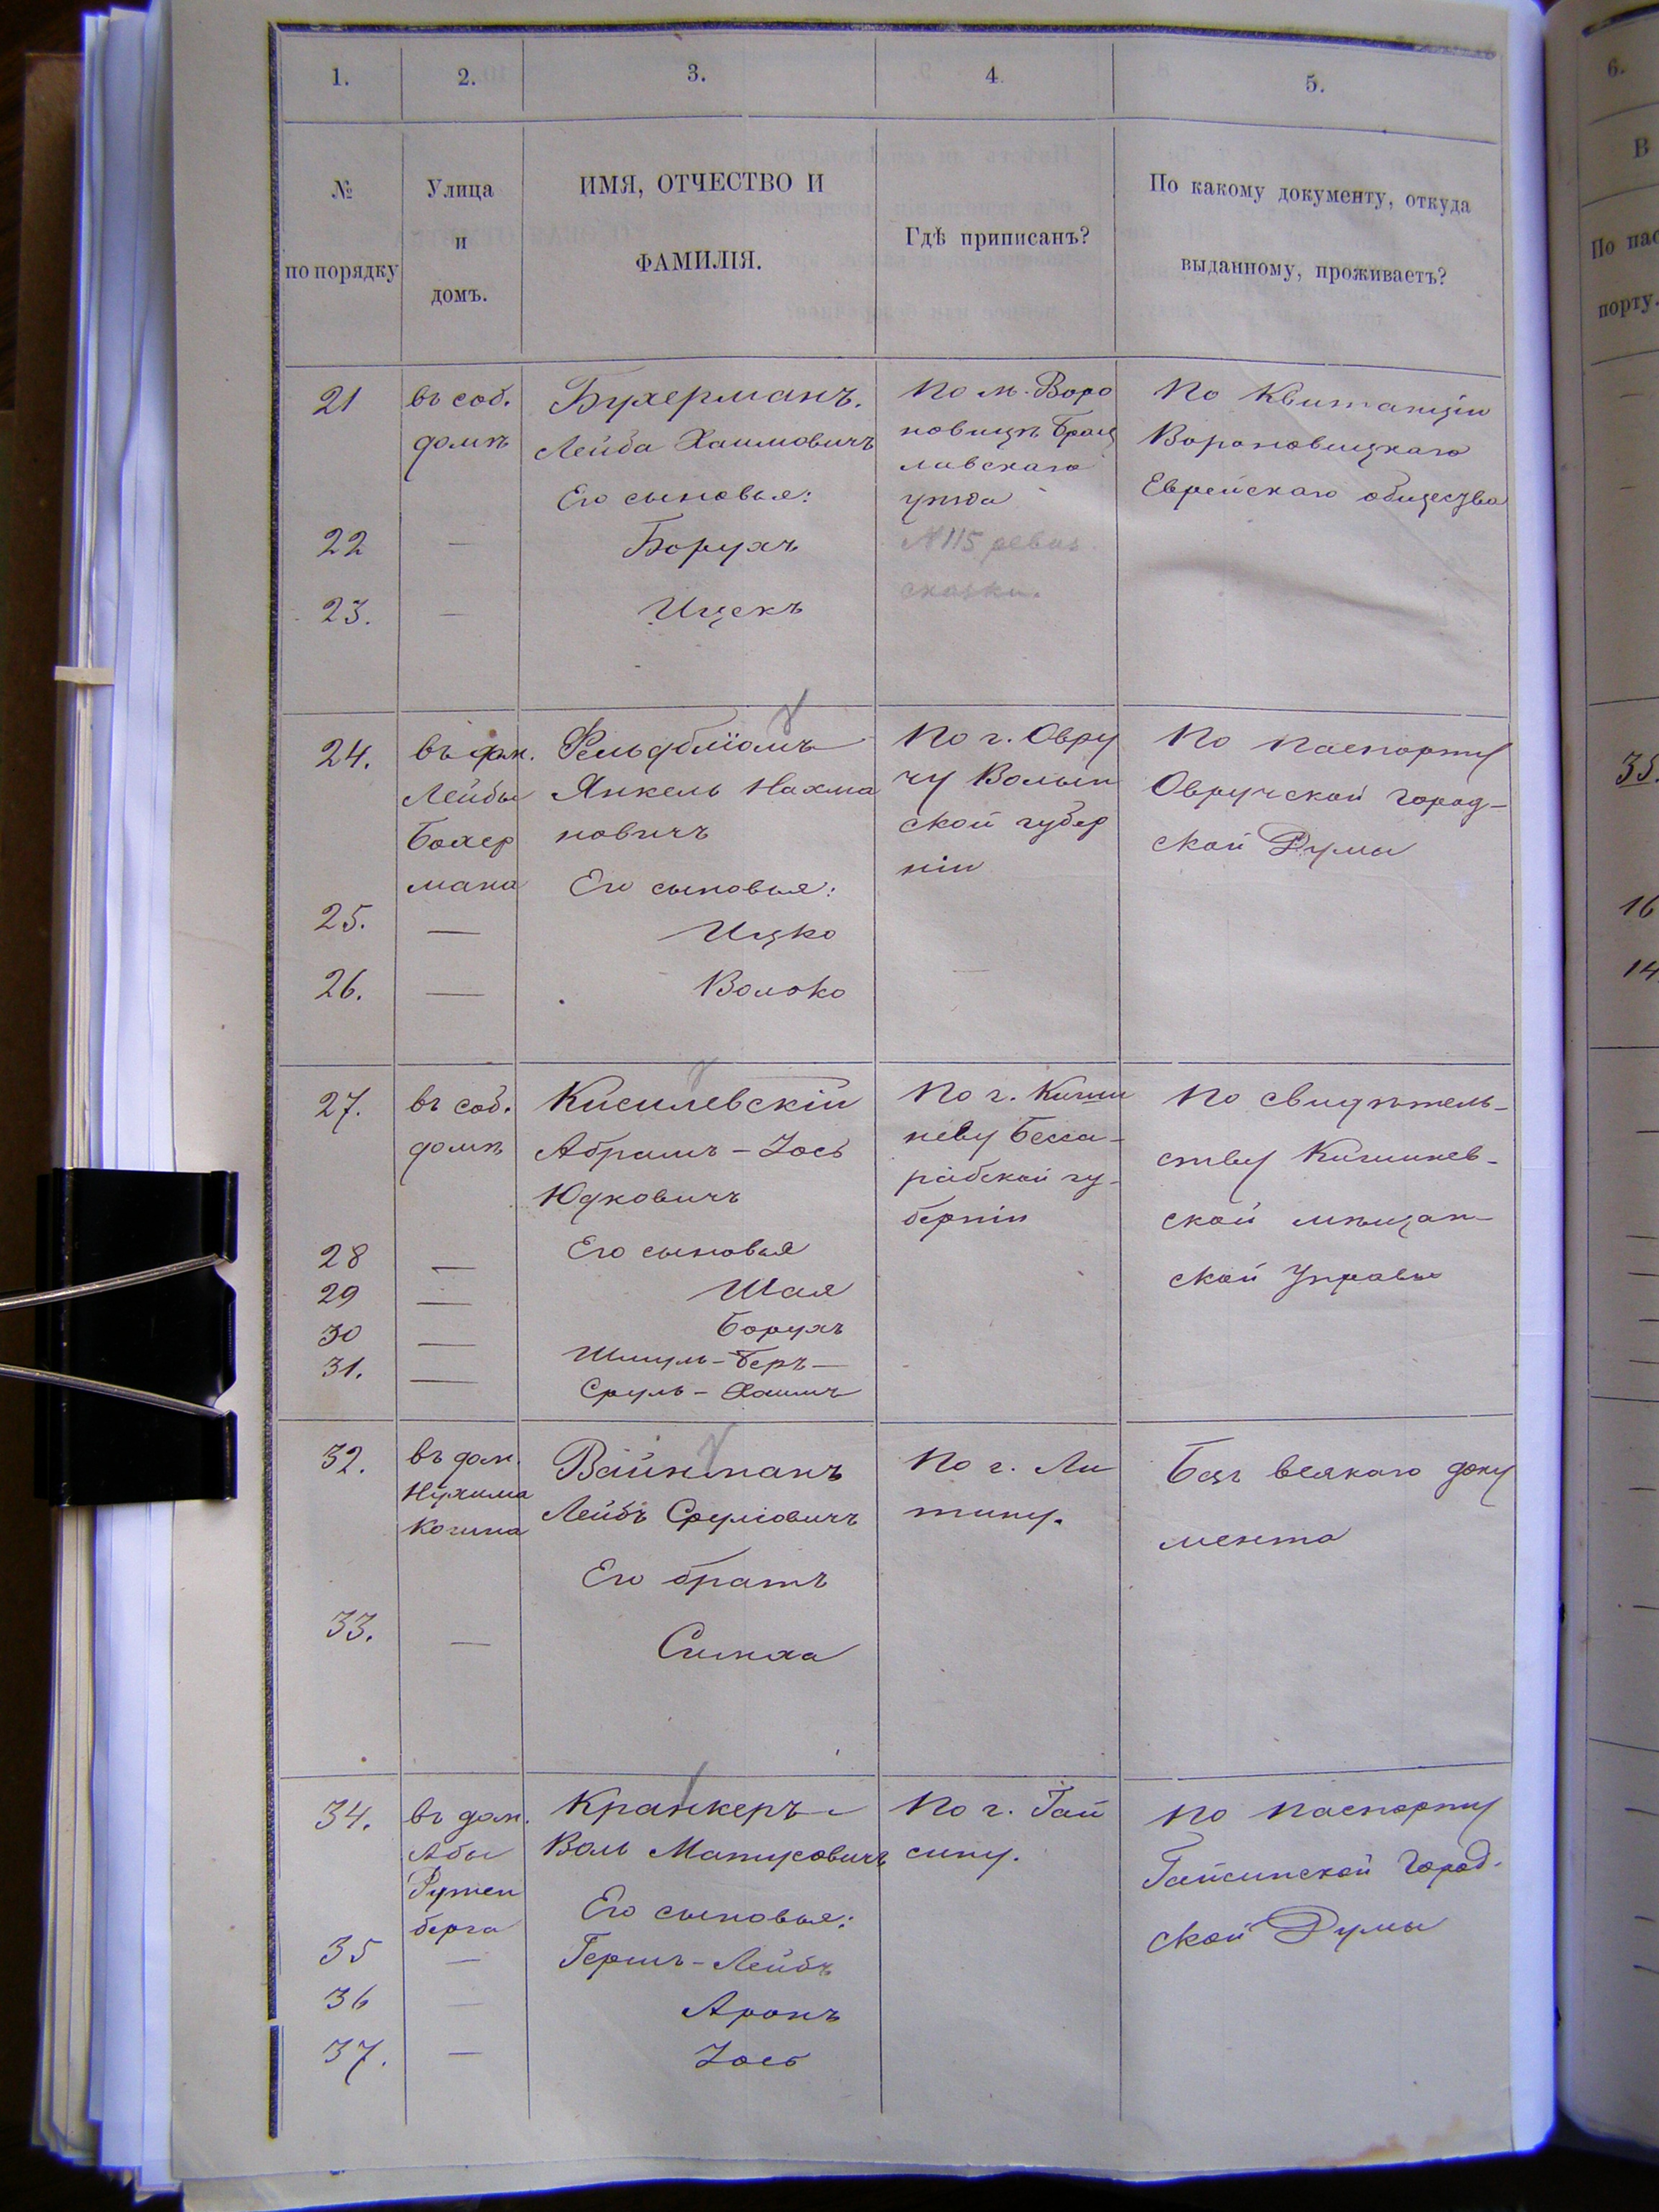 1.
2.
3.
4
5.
6.
№
по порядку
Улица
и
домъ.
ИМЯ, ОТЧЕСТВО И
ФАМИЛІЯ.
Гдѣ приписанъ?
По какому документу, откуда
выданному, проживаетъ?
В
По пас
порту.
21
въ соб.
домѣ
Бухерманъ.
Лейба Хаимовичъ
Его сыновья:
По м. Воро
новицѣ Брац
лавскаго
уѣзда
№ 115 ревиз
сказки.
По Квитанціи
Вороновицкаго
Еврейскаго общества
22
—
Борухъ
23.
—
Ицекъ
24.
въ дом.
Лейбы
Бохер
мана
Фельдблюмъ
Янкель Нахма
новичъ
Его сыновья:
По г. Овру
чу Волын
ской губер
ніи
По паспорту
Овручской город-
ской Думы
35.
25.
—
Ицко
16
26.
—
Волько
14
27.
въ соб.
домѣ
Кисилевскій
Абрамъ-Іось
Юдковичъ
Его сыновья
По г. Киши
неву Бесса-
рабской гу-
берніи
По свидѣтель-
ству Кишинев-
ской мѣщан-
ской Управы
28
—
Шая
29
—
Борухъ
30
—
Шмуль-Беръ-
31.
—
Сруль-Хаимъ
32.
въ дом.
Нухима
Когина
Вайнманъ
Лейбъ Сруліовичъ
Его братъ
По г. Ли
тину.
Безъ всякаго доку
мента
33.
—
Симха
34.
въ дом.
Абы
Рутен
берга
Кранкеръ
Воль Матусовичъ
Его сыновья:
По г. Гай
сину.
По паспорту
Гайсинской Город-
ской Думы
35
—
Гершъ-Лейбъ
36
—
Аронъ
37.
—
Іось